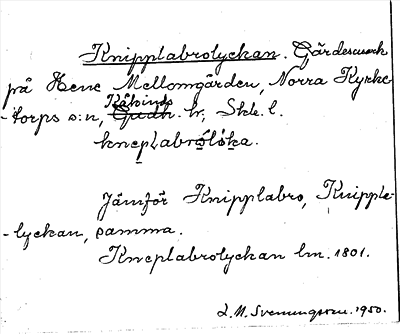 Knipplabrolyckan. Gärdesmark
på Hene Mellomgården, Norra Kyrke-
-torps s:n, Kåkinds Gudh. hr, Skb. l.
kneplabrolöka.
Jämför Knipplabro, Knipple-
-lyckan, samma.
Kneplabrolyckan lm. 1801.
L. M. Svenungsson. 1950.